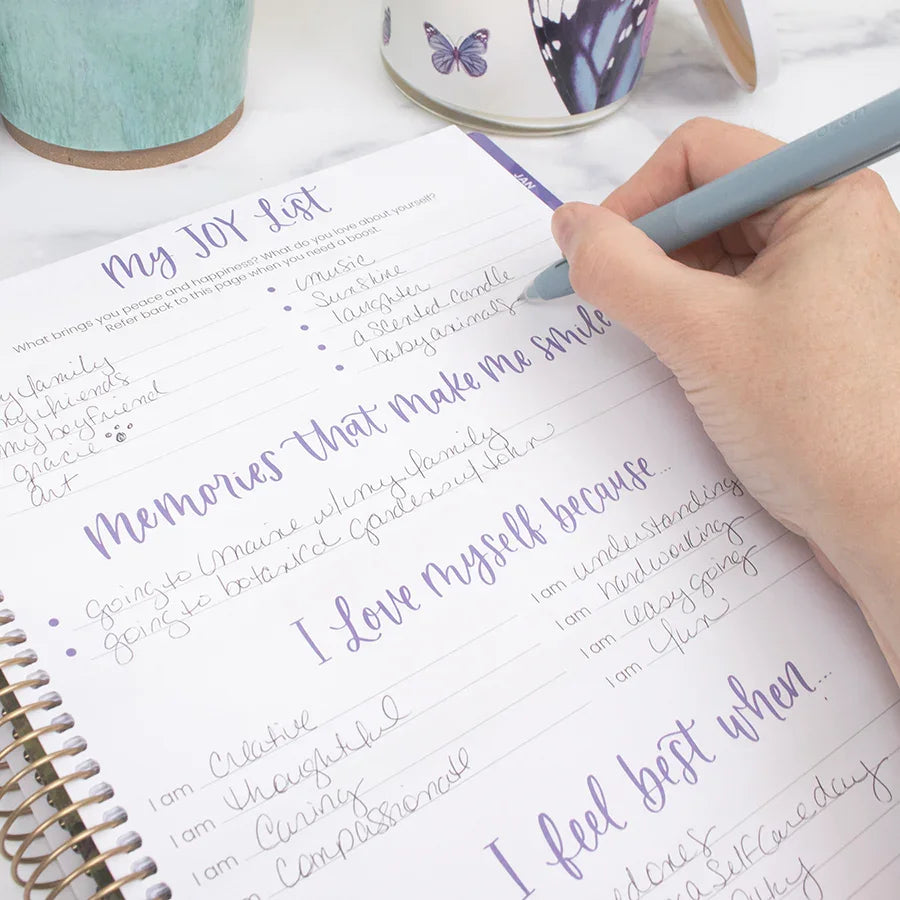 JAN
My JOY List
What brings you peace and happiness? What do you love about yourself?
Refer back to this page when you need a boost.
y family
my friends
my boyfriend
gracie
art
music
Sunshine
laughter
a scented candle
baby animals
Memories that make me smile
going to Maine w/my family
going to botanical gardens w/ John
I Love myself because...
I am creative
I am thoughtful
I am Caring
am compassionate
I am understanding
I am hardworking
I am easy going
I am fun
I feel best when...
a Self Care day